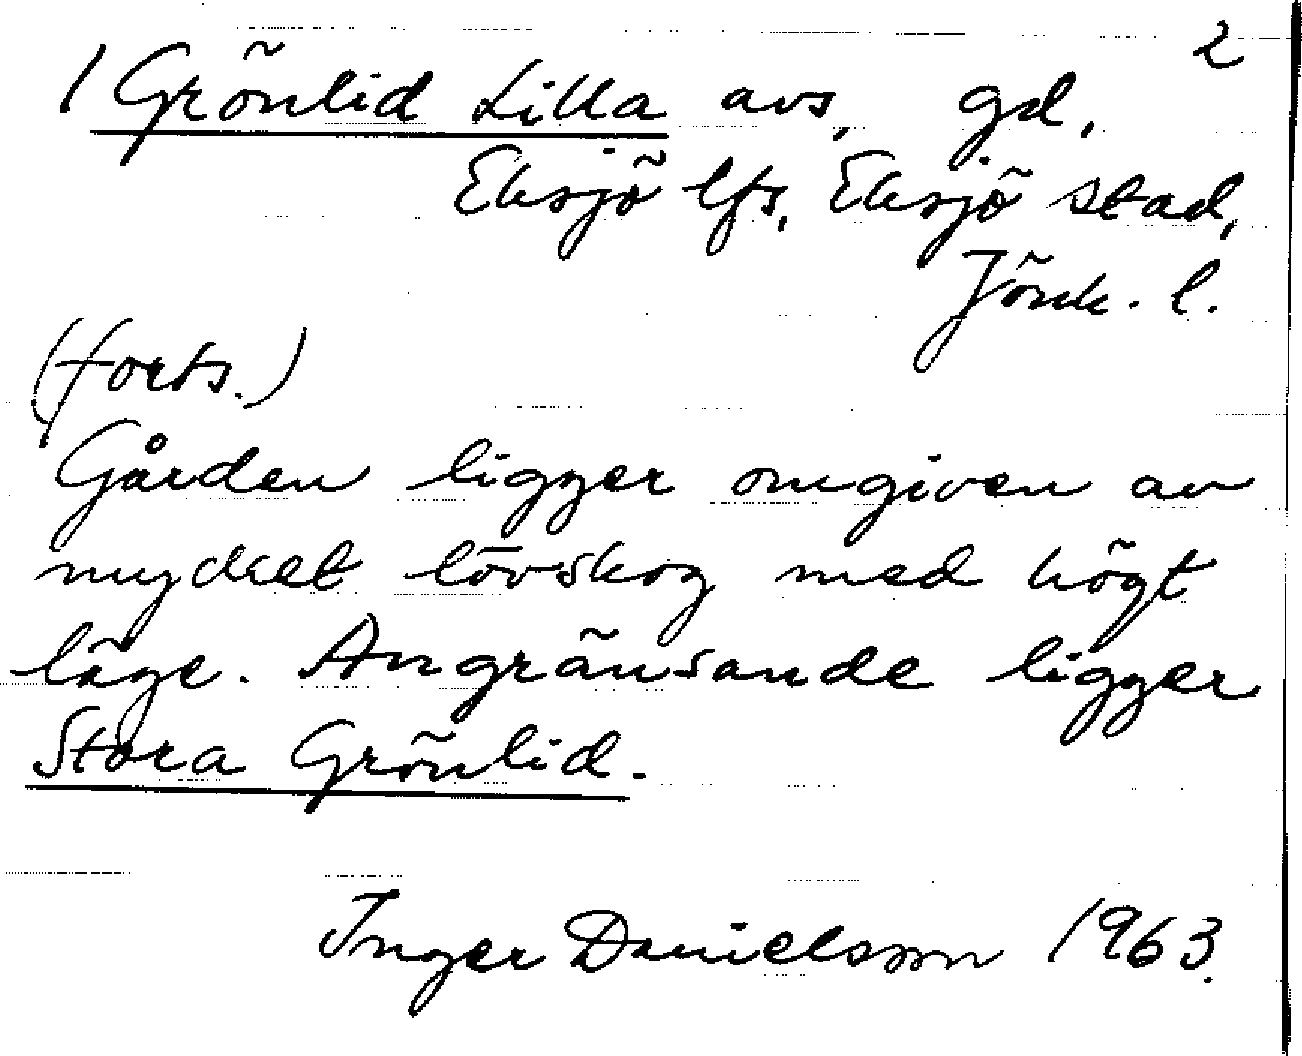 2
1 Grönlid Lilla avs, gd,
Eksjö lfs, Eksjö stad,
Jönk. l.
(forts.)
Gården ligger omgiven av
mycket lövskog med högt
läge. Angränsande ligger
Stora Grönlid.
Inger Danielsson 1963.